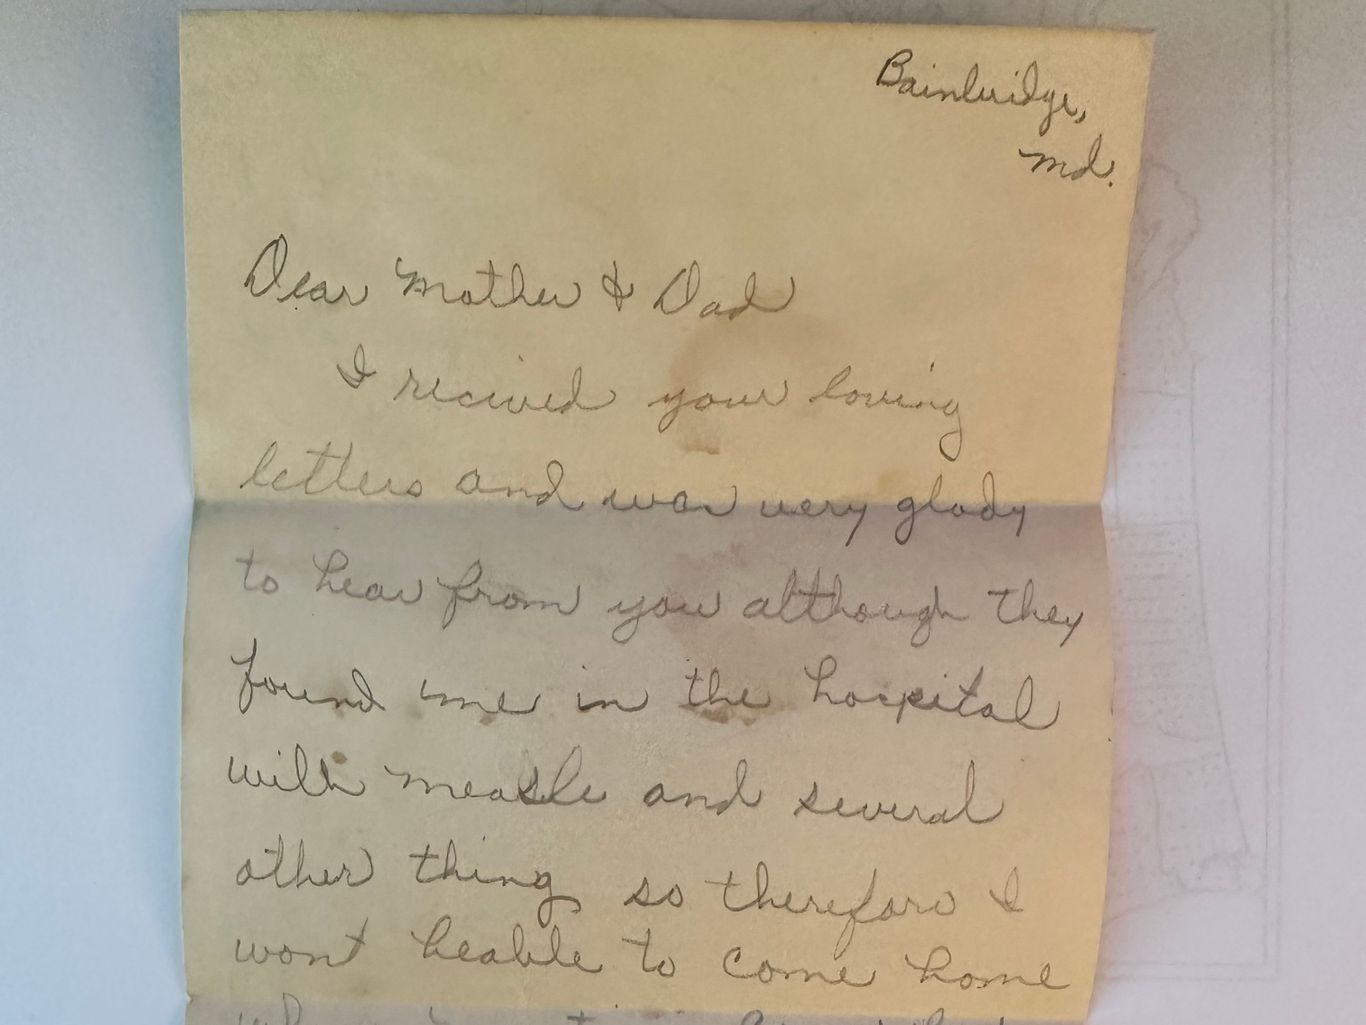 Bainbridge,
Md.
Dear Mother & Dad
I recived your loving
letters and was very glady
to hear from you although they
found me in the hospital
with measle and several
other thing so therefore I
wont beable to come home